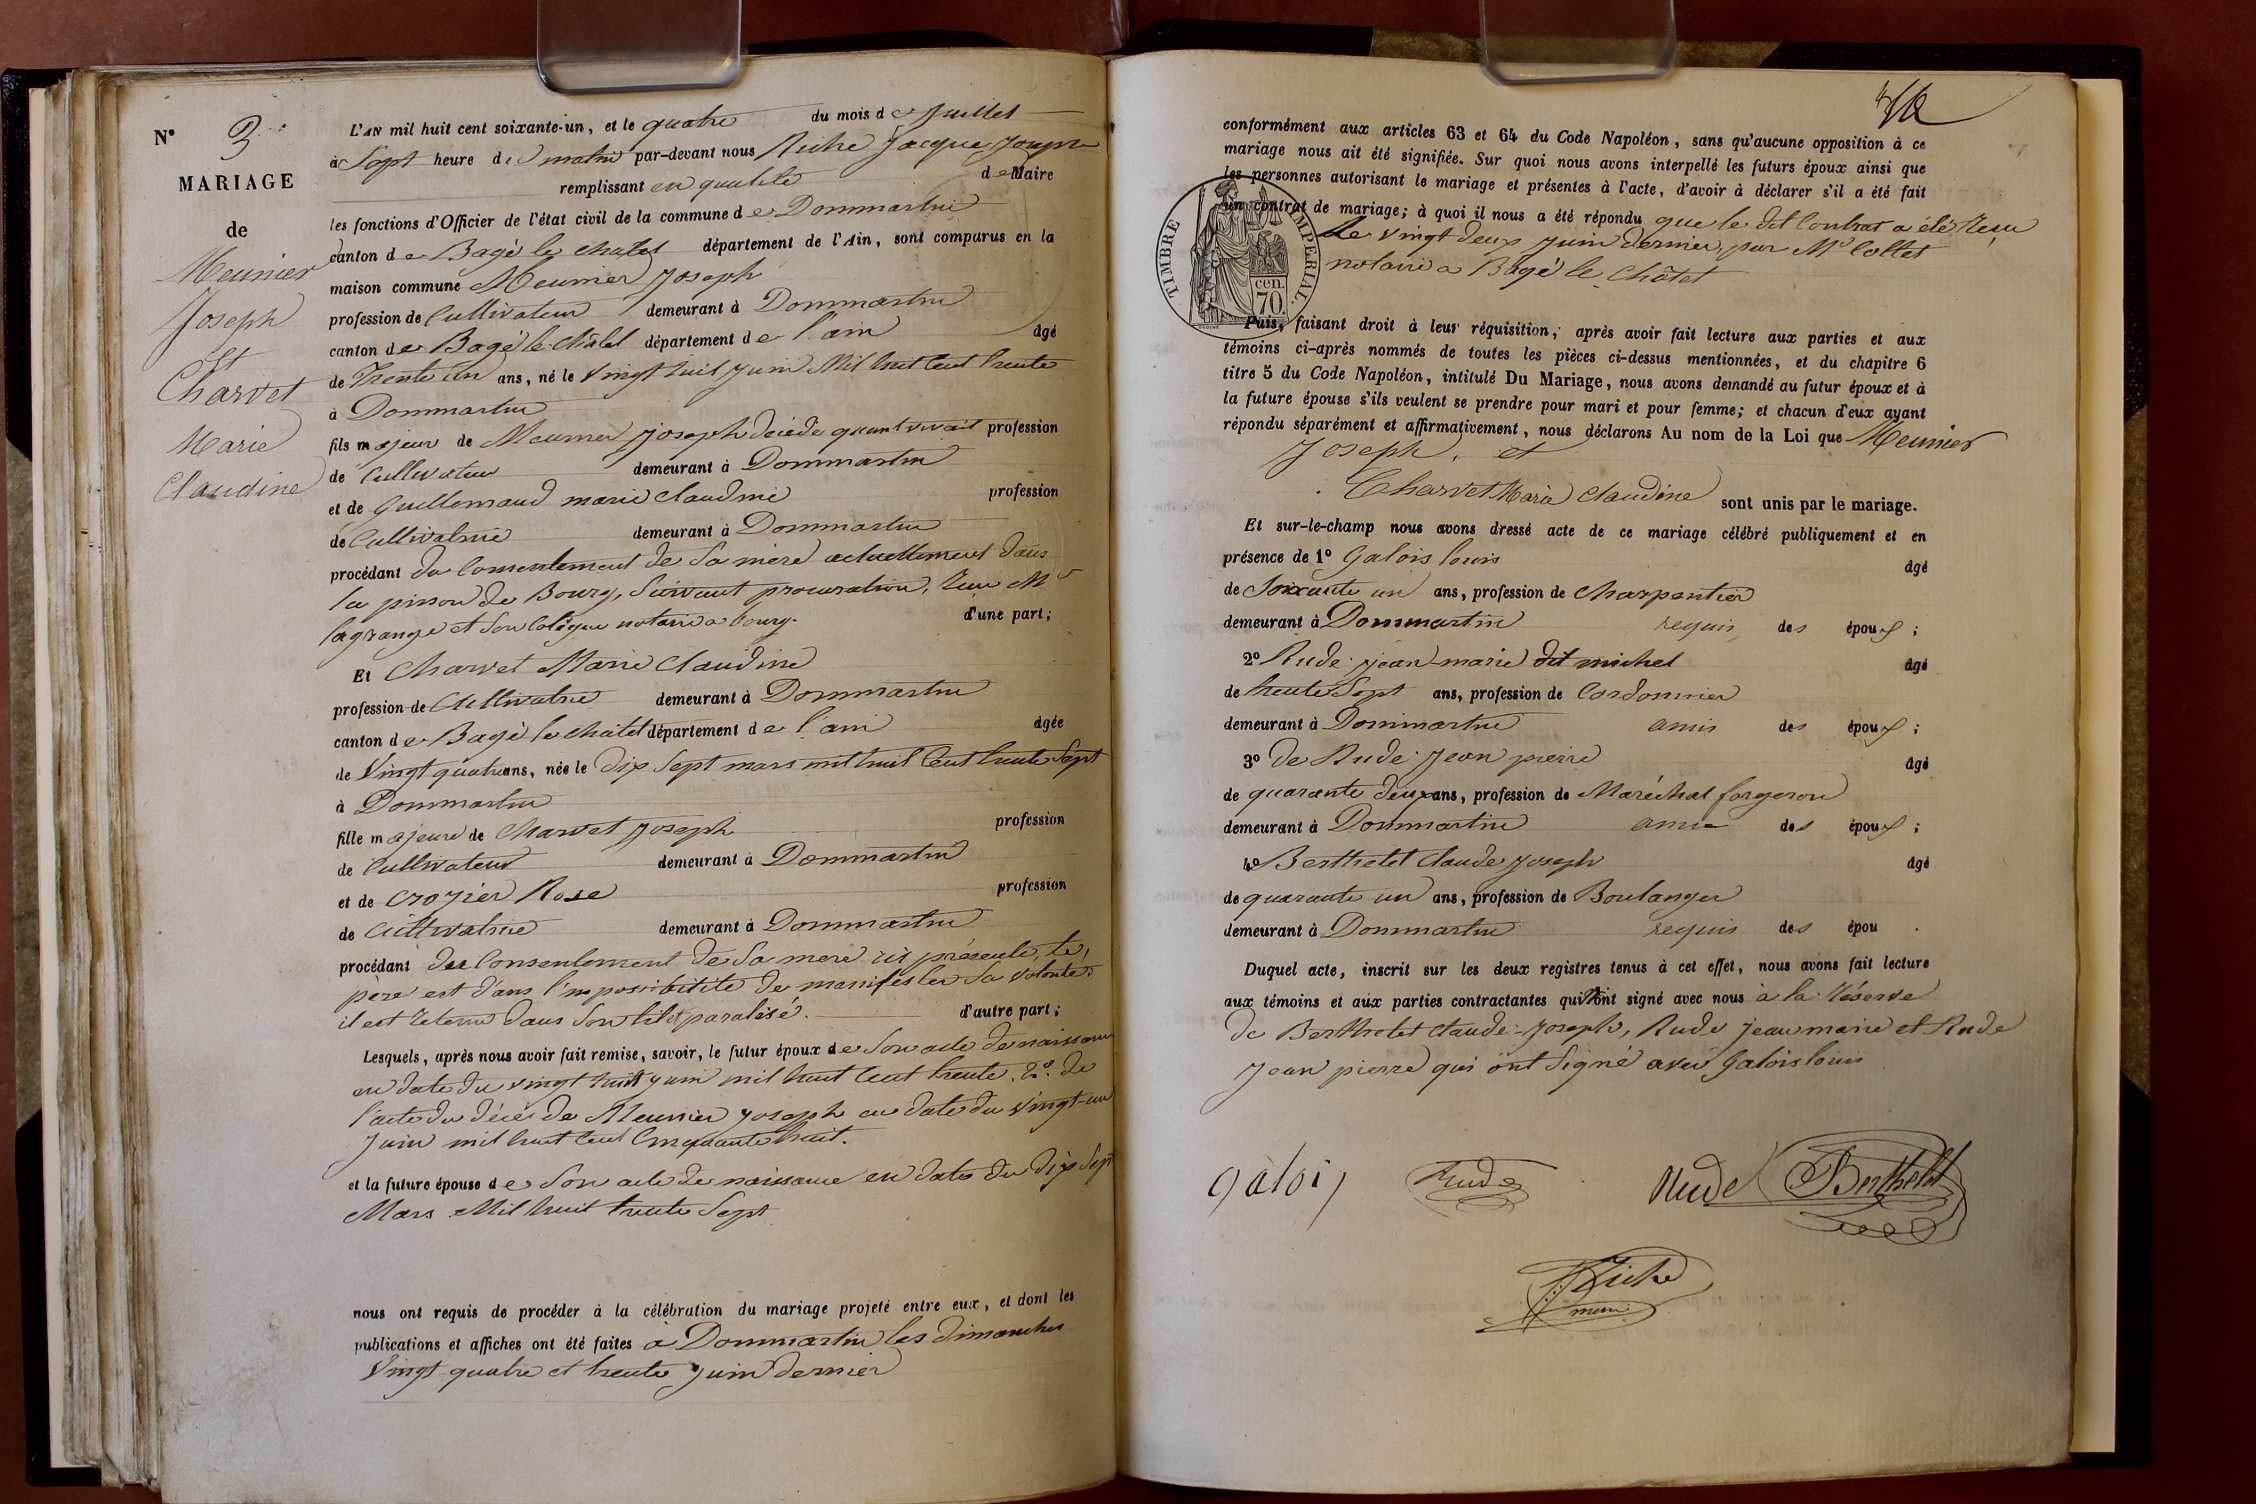 N° 3
MARIAGE
de
Meunier
Joseph
Et
Charvet
Marie
Claudine
L'AN mil huit cent soixante-un, et le quatre du mois de Juillet
à Sept heure du matin par-devant nous Riche Jacque Joseph
remplissant en qualité de Maire
les fonctions d'Officier de l'état civil de la commune de Dommartin
canton de Bagé le chatel département de l'Ain, sont comparus en la
maison commune Meunier Joseph
profession de Cultivateur demeurant à Dommartin
canton de Bagé le Châtel département de l'ain âgé
de Trente un ans, né le Vingt huit Juin Mil huit Cent trente
à Dommartin
fils majeur de Meunier Joseph décédé quant vivait profession
de Cultivateur demeurant à Dommartin
et de Guillemaud marie claudine profession
de Cultivatrice demeurant à Dommartin
procédant du Consentement de Sa mère actuellement dans
la pirson de Bourg, Suivant procuration, Reçu Me
lagrange et Son Colégue notaire a bourg. d'une part;
Et Charvet Marie Claudine
profession de Cultivatrice demeurant à Dommartin
canton de Bagé le chatel département de l'ain âgée
de Vingt quatre ans, née le dix Sept mars mil huit Cent trente Sept
à Dommartin
fille majeure de Charvet Joseph profession
de Cultivateur demeurant à Dommartin
et de Crozier Rose profession
de Cultivatrice demeurant à Dommartin
procédant du Consentement de Sa mere ici présente, le
père est dans l'impossibitité de manifester Sa volonté,
il est retenu dans Son lit et paralisé. d'autre part;
Lesquels, après nous avoir fait remise, savoir, le futur époux de Son acte de naissance
en date du vingt huit juin mil huit Cent trente. 2°. de
l'acte du décès de Meunier Joseph en date du vingt-un
Juin mil huit Cent Cinquante huit.
et la future épouse de Son acte de naissance en date du dix Sept
Mars Mil huit trente Sept
nous ont requis de procéder à la célébration du mariage projeté entre eux, et dont les
publications et affiches ont été faites à Dommartin les dimanches
Vingt quatre et trente Juin dernier
conformément aux articles 63 et 64 du Code Napoléon, sans qu'aucune opposition à ce
mariage nous ait été signifiée. Sur quoi nous avons interpellé les futurs époux ainsi que
les personnes autorisant le mariage et présentes à l'acte, d'avoir à déclarer s'il a été fait
un contrat de mariage; à quoi il nous a été répondu que le dit Contrat a été Reçu
Le Vingt deux Juin dernier, par Me Collet
notaire a Bagé le Châtel
TIMBRE IMPERIAL.
cen.
70.
Puis, faisant droit à leur réquisition, après avoir fait lecture aux parties et aux
témoins ci-après nommés de toutes les pièces ci-dessus mentionnées, et du chapitre 6
titre 5 du Code Napoléon, intitulé Du Mariage, nous avons demandé au futur époux et à
la future épouse s'ils veulent se prendre pour mari et pour femme; et chacun d'eux ayant
répondu séparément et affirmativement, nous déclarons Au nom de la Loi que Meunier
Joseph, et
Charvet Marie Claudine sont unis par le mariage.
Et sur-le-champ nous avons dressé acte de ce mariage célébré publiquement et en
présence de 1° Galois louis âgé
de Soixante un ans, profession de Charpentier
demeurant à Dommartin requis des époux;
2° Rude jean-marie dit michel âgé
de trente Sept ans, profession de Cordonnier
demeurant à Dommartin amis des époux;
3° de Rude Jean pierre âgé
de quarante deux ans, profession de Maréchal forgeron
demeurant à Dommartin amis des époux;
4° Berthelet Claude Joseph âgé
de quarante un ans, profession de Boulanger
demeurant à Dommartin requis des épou .
Duquel acte, inscrit sur les deux registres tenus à cet effet, nous avons fait lecture
aux témoins et aux parties contractantes qui n'ont signé avec nous à la réserve
de Berthelet Claude-Joseph, Rude Jean marie et Rude
Jean pierre qui ont Signé avec Galois louis
galois Rude Rude Berthelet
Riche
maire